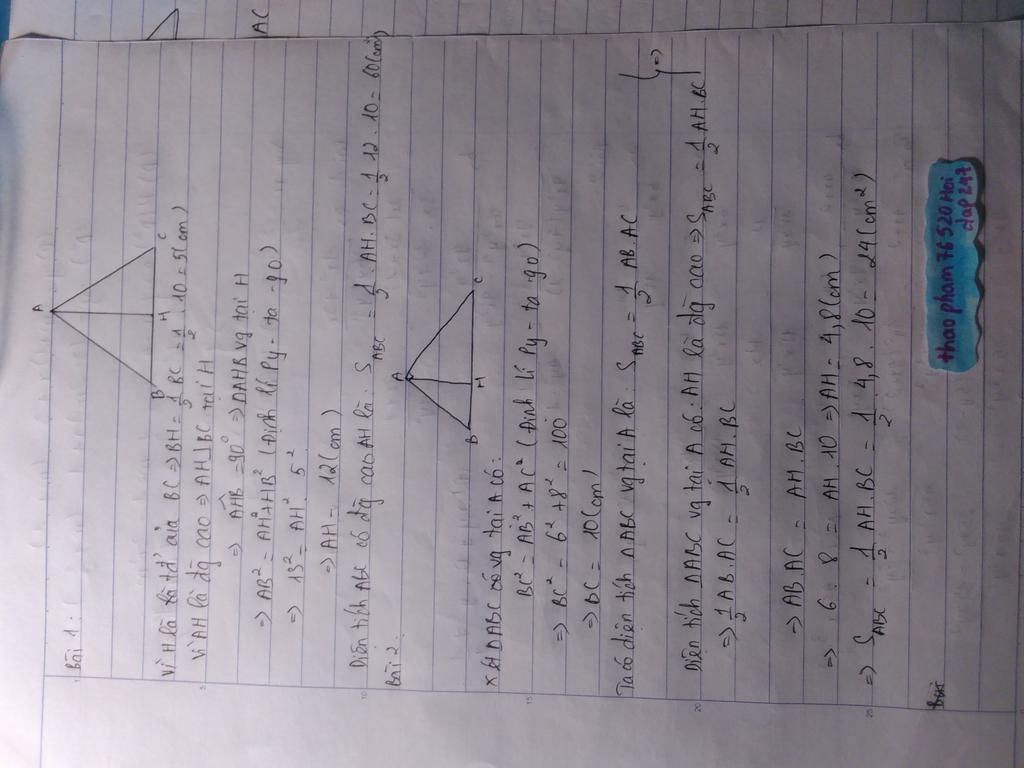 Bài 1:
A
B
H
C
Vì H là tđ' của BC => BH = 1/2 BC = 1/2 . 10 = 5(cm)
Vì AH là đg cao => AH⊥BC tại H
=> AĤB = 90° => ΔAHB vg tại H
=> AB² = AH²+HB² (Định lí Py-ta-go)
=> 13² = AH² + 5²
=> AH = 12(cm)
Diện tích ABC có đg cao AH là: S ABC = 1/2 . AH . BC = 1/2 . 12 . 10 = 60(cm²)
Bài 2:
A
B
H
C
Xét ΔABC có vg tại A có:
BC² = AB² + AC² (Định lí Py-ta go)
=> BC² = 6² + 8² = 100
=> BC = 10(cm)
Ta có diện tích ΔABC vg tại A là: S ABC = 1/2 AB.AC
Diện tích ΔABC vg tại A có AH là đg cao => S ABC = 1/2 AH.BC
} =>
=> 1/2 AB.AC = 1/2 AH.BC
=> AB AC = AH.BC
=> 6 . 8 = AH . 10 => AH = 4,8(cm)
=> S ABC = 1/2 AH.BC = 1/2 4,8 . 10 = 24(cm²)
thao pham 76520 Hoi
dap 247
AC
5
10
15
20
25